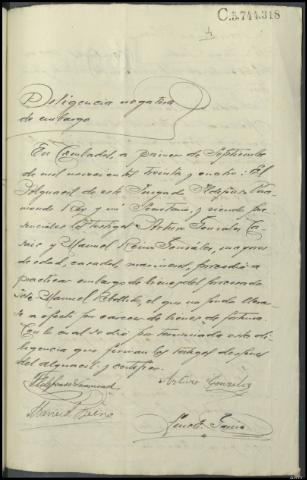 C.5.744.348
Diligencia negativa
de embargo
En Cambados, a primero de Septiembre
de mil novecientos treinta y cuatro: El
Alguacil de este Juzgado
Rey y mi Secretario, y siendo pre-
senciales los testigos Arturo Gonzalez
y Manuel González, mayores
de edad, casados, marineros, procedió a
practicar embargo de bienes del procesado
Manuel el que no pudo llevar-
se a efecto por carecer de bienes de fortuna.
Con lo cual se dió por terminada esta di-
ligencia que firman los testigos despues
del alguacil y certifico.
Arturo Gonzalez
Manuel